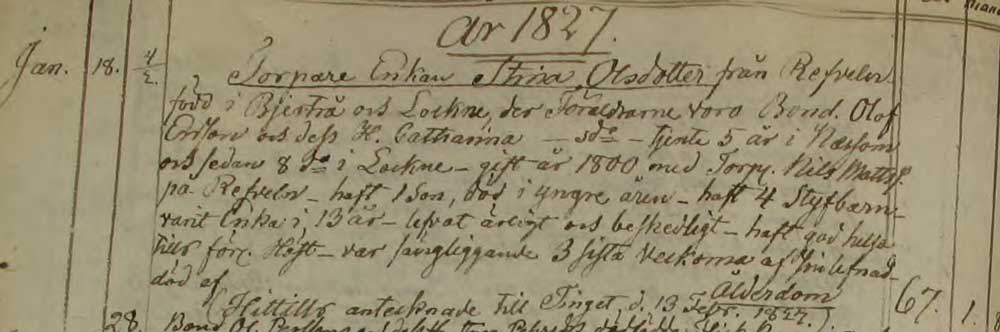 År 1827.
Jan. 18. 4/2. Torpare Enkan Stina Olsdotter från Refveln
född i Bjertrå och Lockne, der Föräldrarne voro Bond. Olof
Ersson och dess H. Catharina – sdr – tjente 5 år i Næssom
och sedan 8 do i Lockne – gift år 1800 med Torp. Nils Matts.
på Refveln – haft 1 son, död i yngre åren – haft 4 Styfbarn –
varit Enka i 13 år – lefvat ärligt och beskedligt – haft god helsa
till förl. Höst – var sängliggande 3 sista veckorna af sin lefnad –
död af Ålderdom 67. 1.
(Hittills antecknade till Tinget, d. 13 Febr. 1827.)
28. Bond Ol.